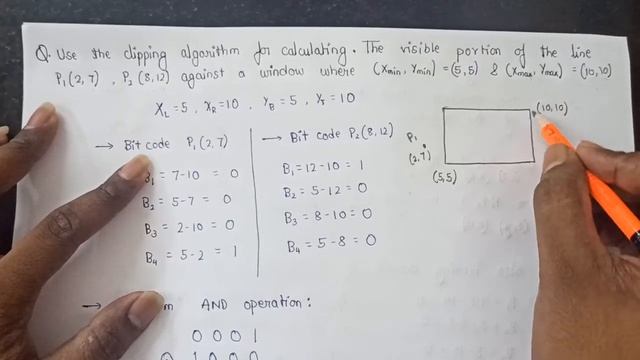 Q. Use the clipping algorithm for calculating. The visible portion of the line
P₁(2,7), P₂(8,12) against a window where (Xmin, Ymin) = (5,5) & (Xmax, Ymax) = (10,10)
X_L = 5, X_R = 10, Y_B = 5, Y_T = 10
→ Bit code P₁(2,7)
B₁ = 7-10 = 0
B₂ = 5-7 = 0
B₃ = 2-10 = 0
B₄ = 5-2 = 1
→ Bit code P₂(8,12)
B₁ = 12-10 = 1
B₂ = 5-12 = 0
B₃ = 8-10 = 0
B₄ = 5-8 = 0
(10,10)
P₁
(2,7)
(5,5)
→ AND operation:
0 0 0 1
1 0 0 0